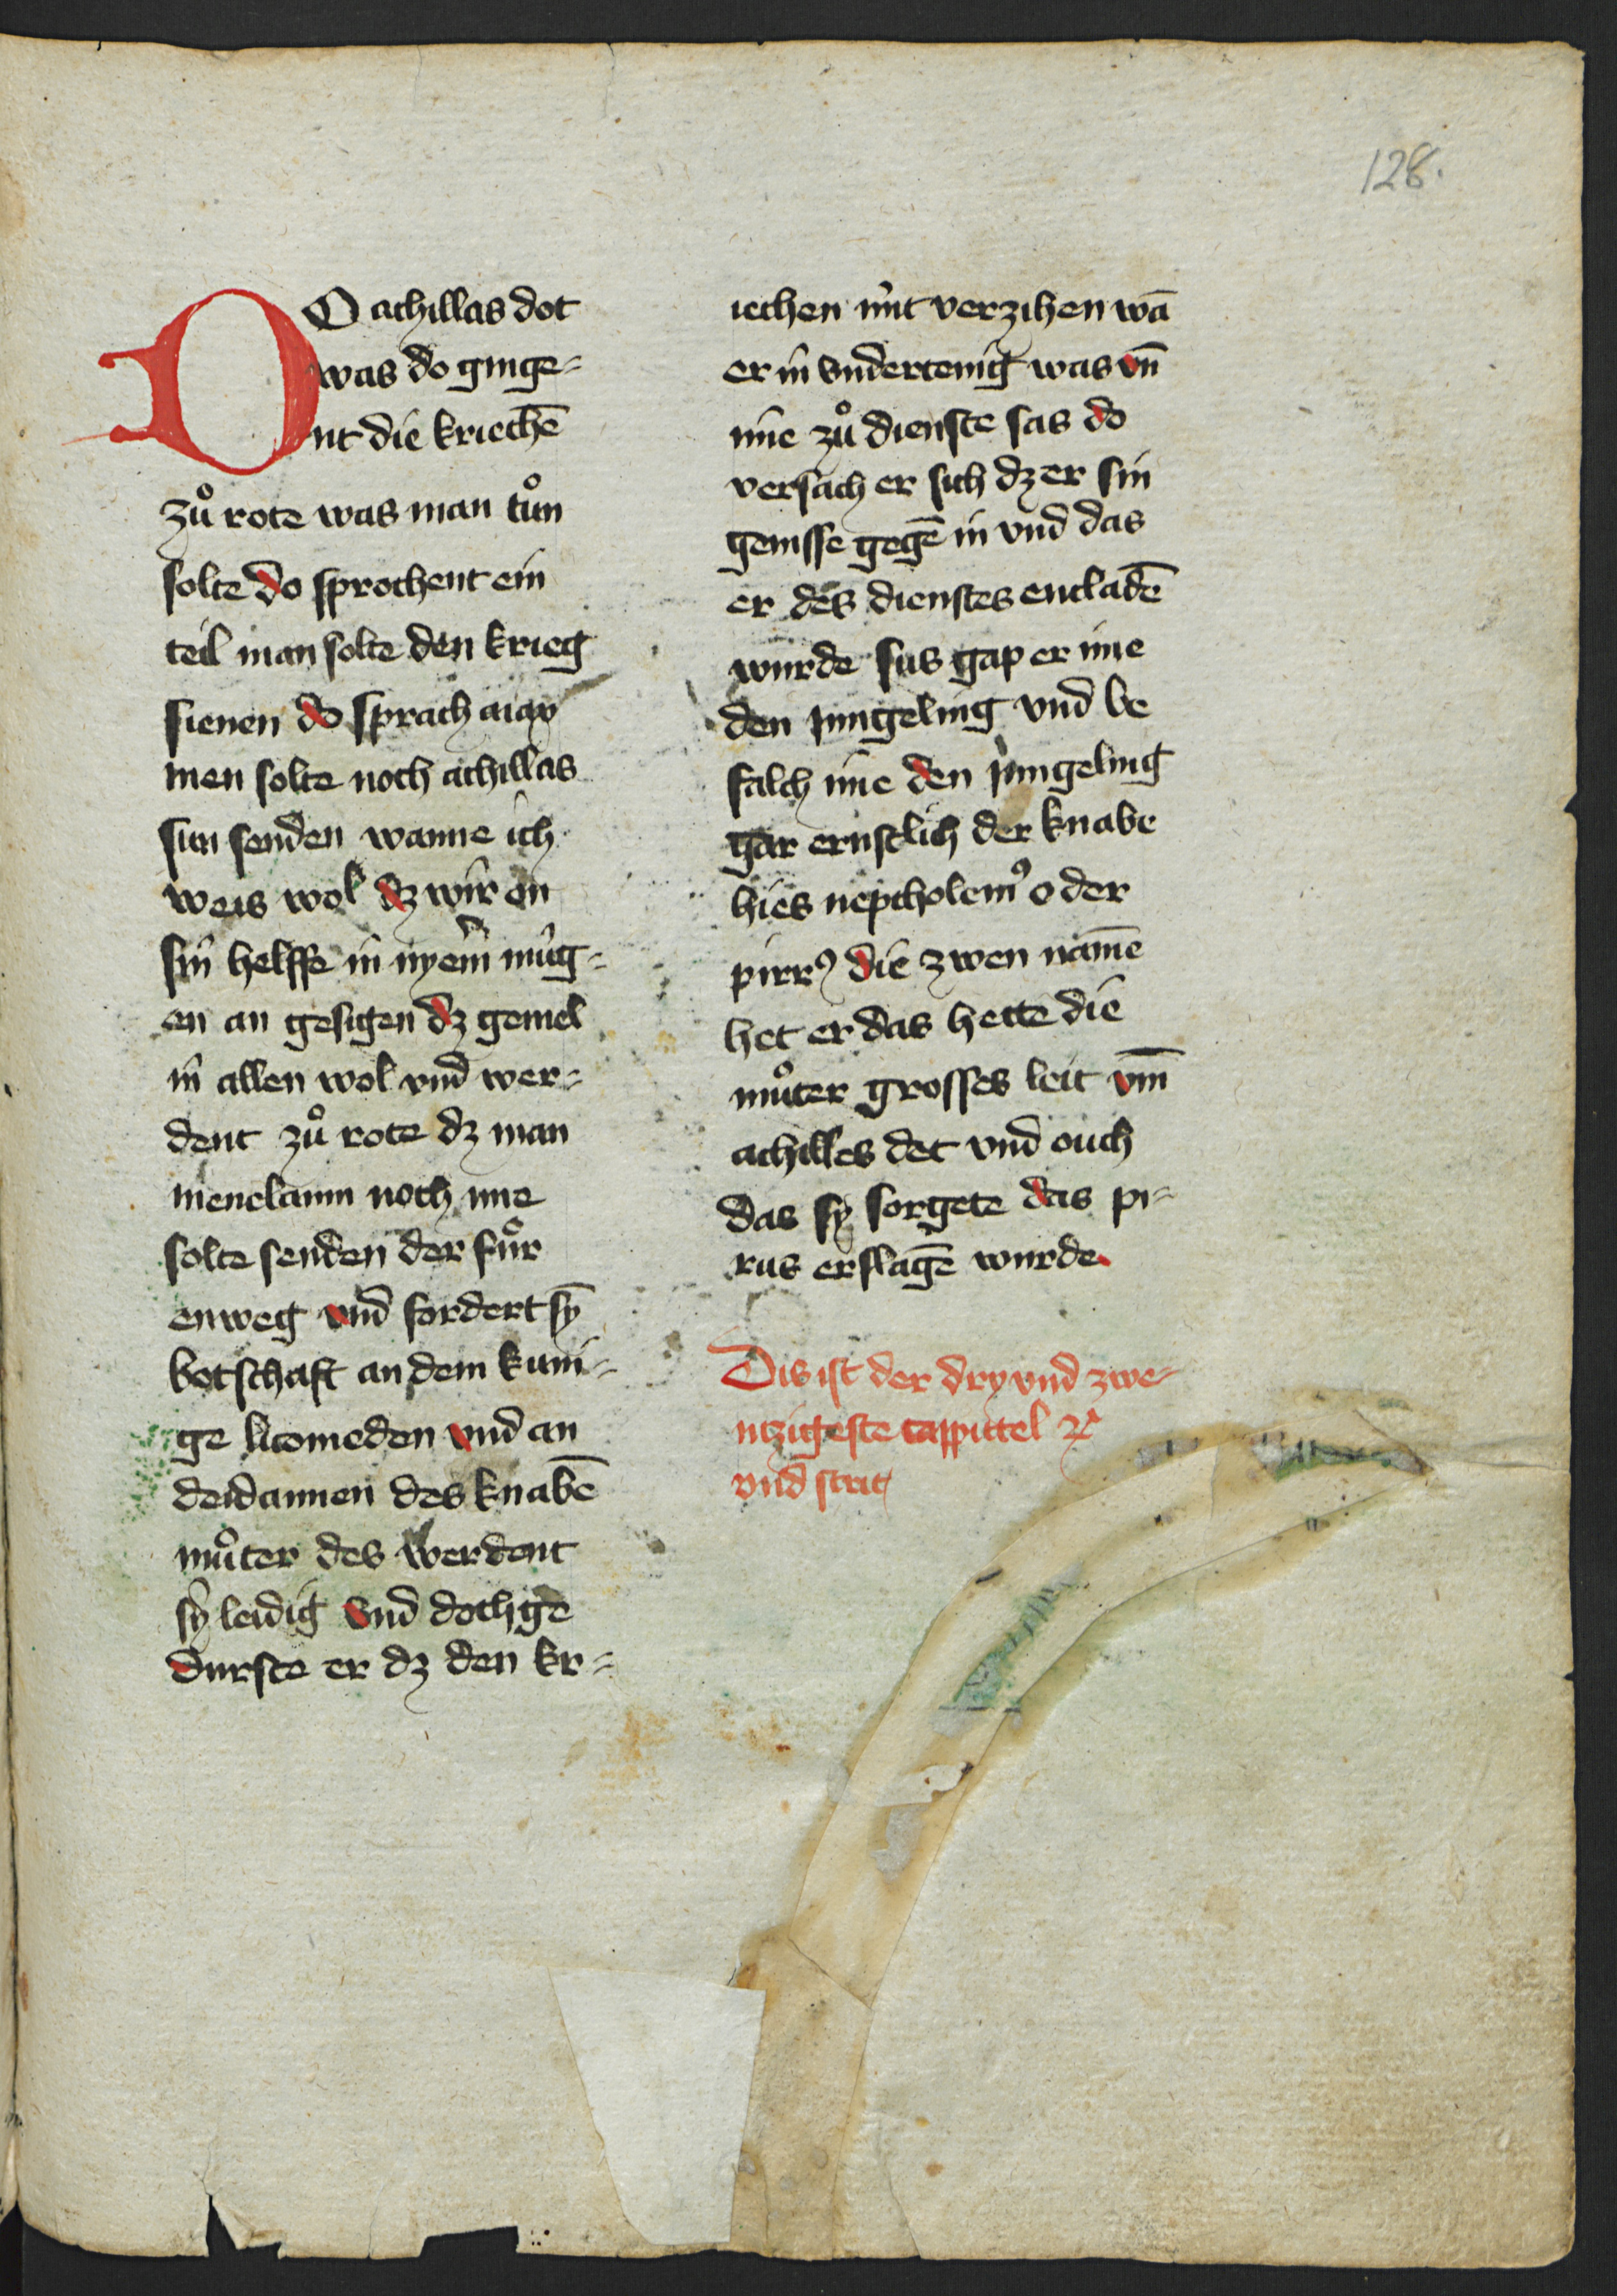 128.
DO achillas dot
was do ginge-
nt die kriechē
zuͦ rote was man tuͦn
solte do sprochent ein
teil man solte den krieg
sienen do sprach aiax
men solte noch achillas
sun senden wanne ich
weis wol dz wir on
sin helffe in nyem̄ mug-
en an gesigen dz geuiel
in allen wol vnd wer-
dent zuͦ rote dz man
menelaum noch ime
solte senden der fuͦr
enweg vnd fordert sȳ
botschaft an dem kuni-
ge licomeden vnd an
deidamien des knabē
muͦter des werdent
sy leidig vnd doch ge
durste er dz den kr-
iechen nit verzihen wā
er in vndertenig was vn̄
ime zuͦ dienste sas do
versach er sich dz er sin
genisse gegē in vnd das
er des dienstes entladē
wurde sus gap er ime
den jungeling vnd be
falch ime den jungeling
gar ernstlich der knabe
hies neptholemꝰ oder
pirrꝰ die zwen namē
het er das hette die
muͦter grosses leit vm̄
achilles det vnd ouch
das sy sorgete das pi-
rus erslagē wurde
Dis ist der dry vnd zwe-
ntzigeste cappittel ⁊
vnd strit